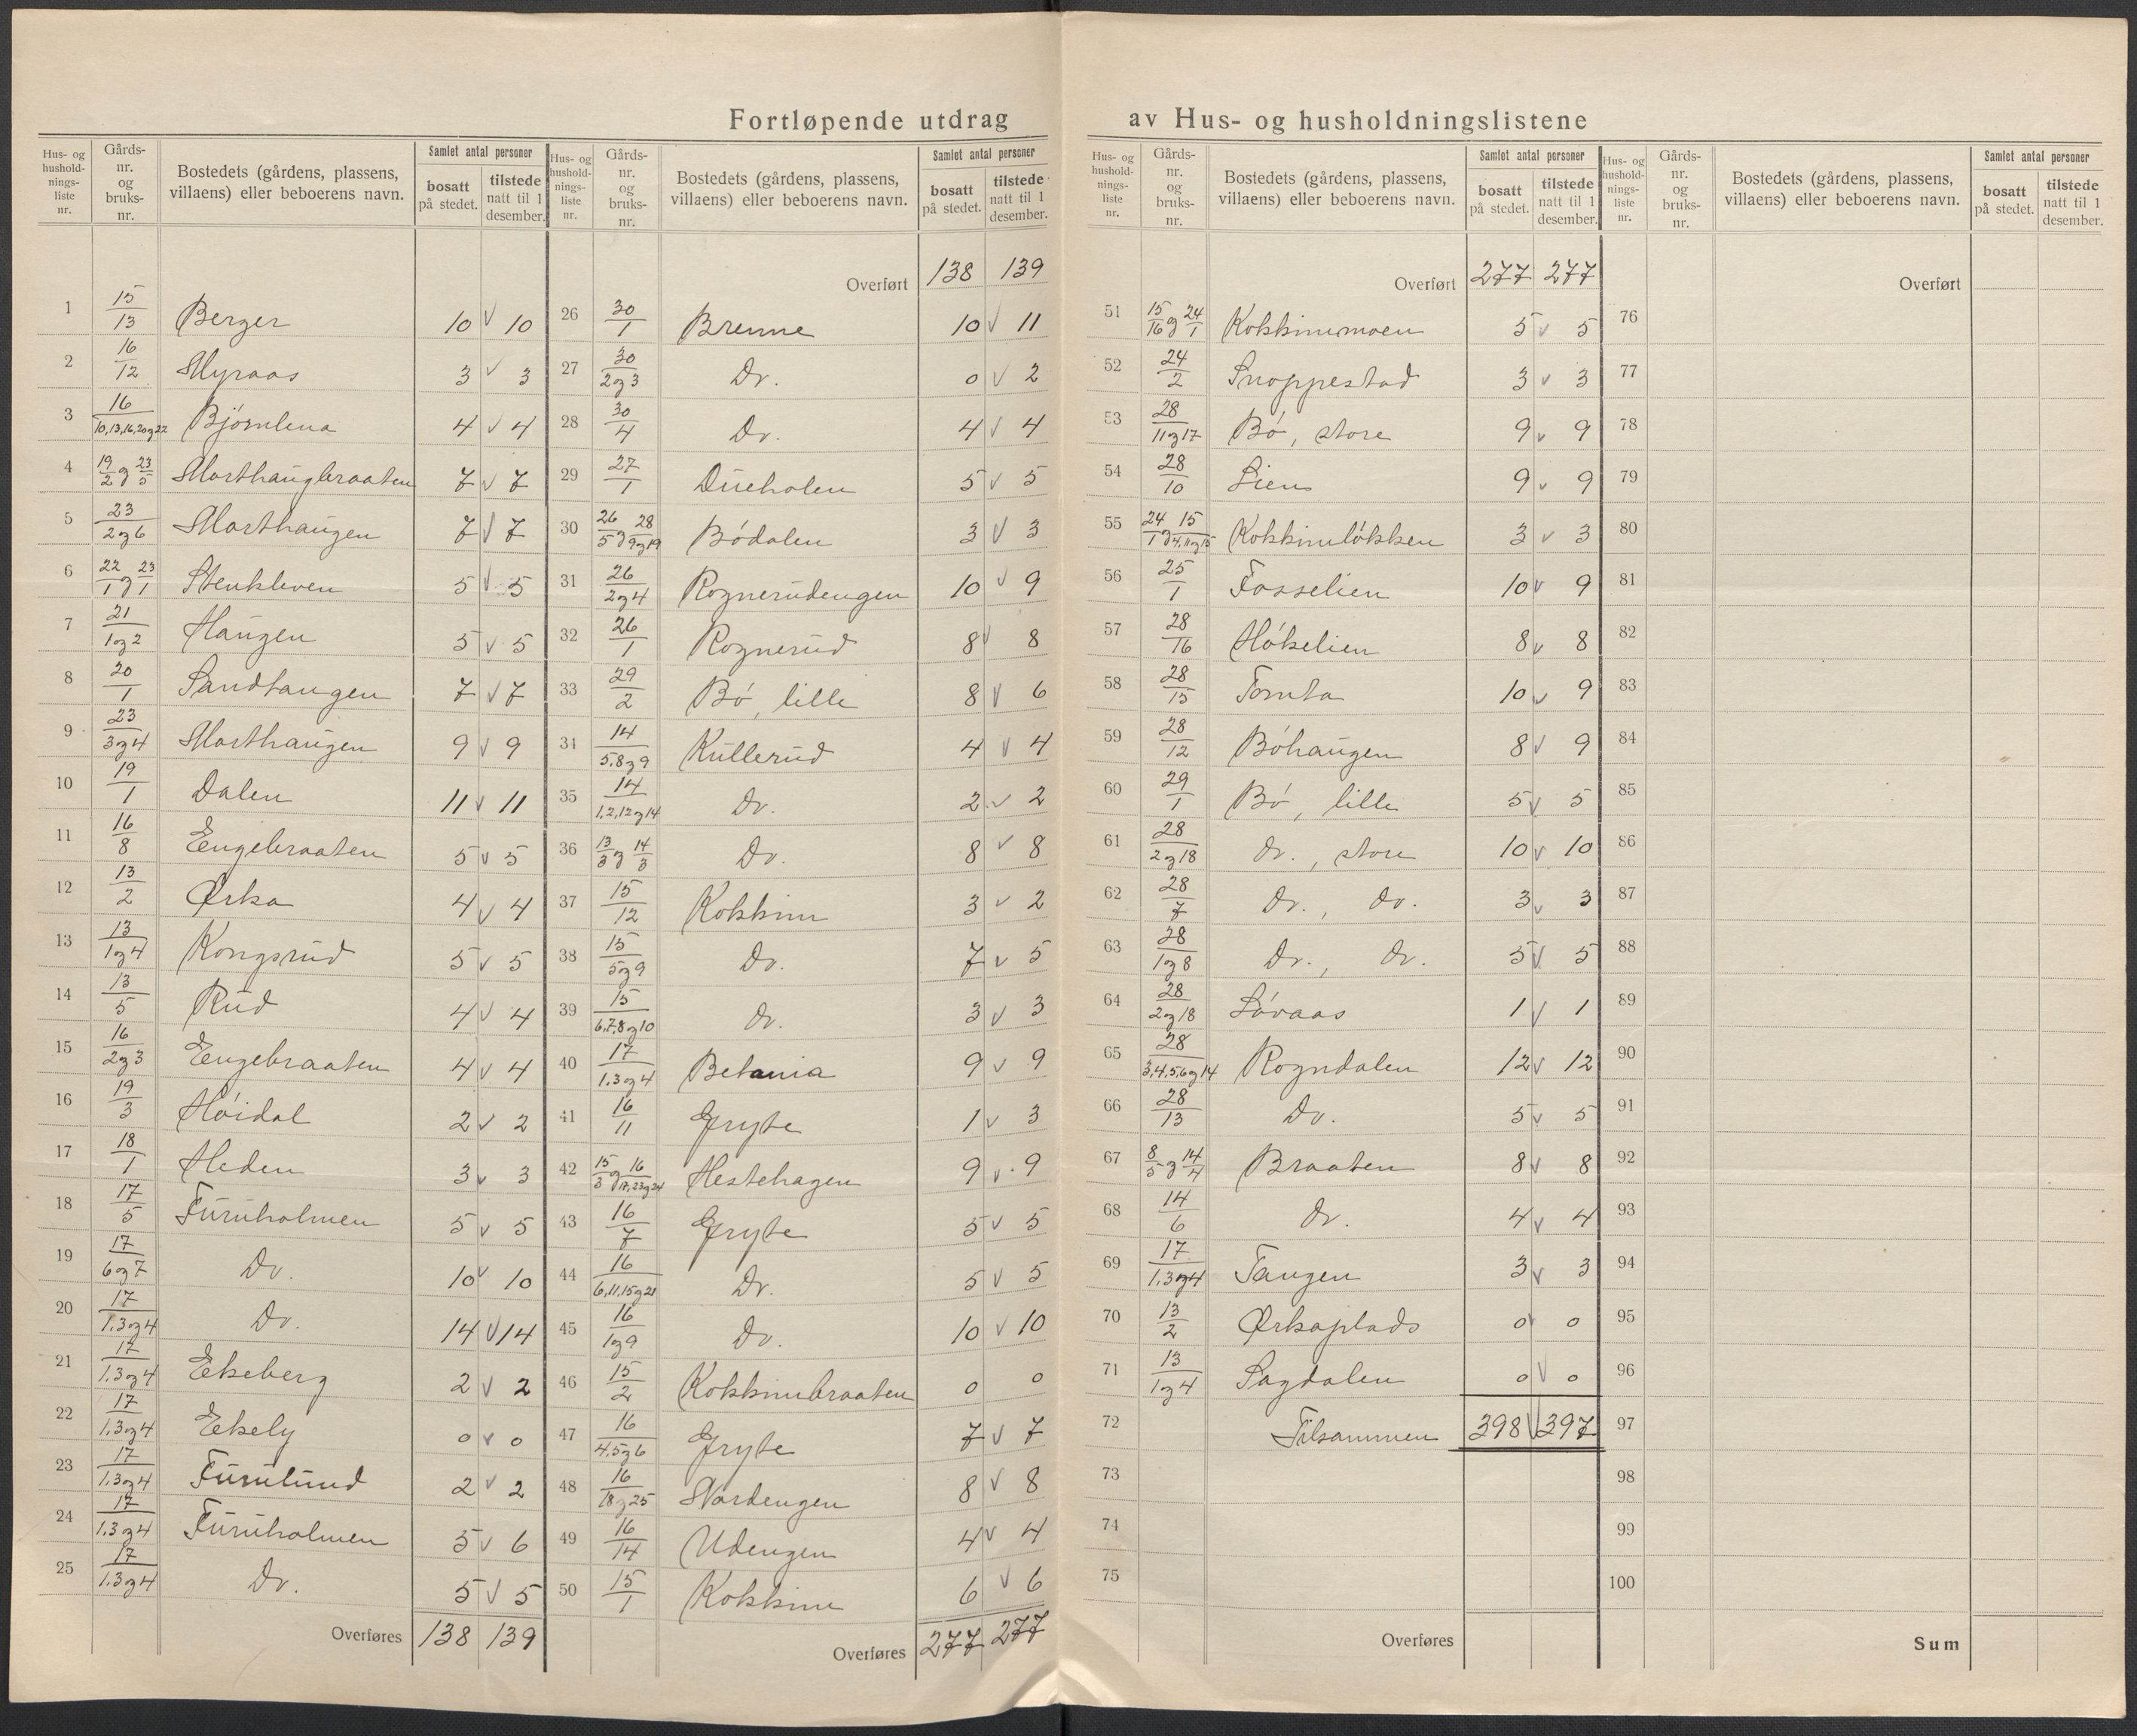 Fortløpende utdrag av Hus- og husholdningslistene
Hus- og hushold-nings-liste nr. | Gårds-nr. og bruks-nr. | Bostedets (gårdens, plassens, villaens) eller beboerens navn. | Samlet antal personer | bosatt på stedet. | tilstede natt til 1 desember.
1 15/13 Berger 10 v 10
2 16/12 Myraas 3 v 3
3 16/10,13,16,20og22 Bjørnlena 4 v 4
4 19/2 og 23/5 Morthaugbraaten 7 v 7
5 23/2og6 Morthaugen 7 v 7
6 22/1 og 23/1 Stenkleven 5 v 5
7 21/1og2 Haugen 5 v 5
8 20/1 Sandtangen 7 v 7
9 23/3og4 Morthaugen 9 v 9
10 19/1 Dalen 11 v 11
11 16/8 Engebraaten 5 v 5
12 13/2 Ørka 4 v 4
13 13/1og4 Kongsrud 5 v 5
14 13/5 Rud 4 v 4
15 16/2og3 Engebraaten 4 v 4
16 19/3 Høidal 2 v 2
17 18/1 Heden 3 v 3
18 17/5 Furuholmen 5 v 5
19 17/6og7 Do. 10 v 10
20 17/1.3og4 Do. 14 v 14
21 17/1.3og4 Ekeberg 2 v 2
22 17/1.3og4 Ekely 0 v 0
23 17/1.3og4 Furulund 2 v 2
24 17/1.3og4 Furuholmen 5 v 6
25 17/1.3og4 Do. 5 v 5
Overføres 138 139
Hus- og hushold-nings-liste nr. | Gårds-nr. og bruks-nr. | Bostedets (gårdens, plassens, villaens) eller beboerens navn. | Samlet antal personer | bosatt på stedet. | tilstede natt til 1 desember.
Overført 138 139
26 30/1 Brenne 10 v 11
27 30/2og3 Do. 0 v 2
28 30/4 Do. 4 v 4
29 27/1 Dueholen 5 v 5
30 26/5 og 28/9og19 Bødalen 3 v 3
31 26/2og4 Rognerudengen 10 v 9
32 26/1 Rognerud 8 v 8
33 29/2 Bø, lille 8 v 6
34 14/5.8og9 Kullerud 4 v 4
35 14/1,2,12og14 Do. 2 v 2
36 13/3 og 14/3 Do. 8 v 8
37 15/12 Kokkim 3 v 2
38 15/5og9 Do. 7 v 5
39 15/6,7,8og10 Do. 3 v 3
40 17/1.3og4 Betania 9 v 9
41 16/11 Gryte 1 v 3
42 15/3 og 16/17,23og24 Hestehagen 9 v 9
43 16/7 Gryte 5 v 5
44 16/6,11,15og21 Do. 5 v 5
45 16/1og9 Do. 10 v 10
46 15/2 Kokkimbraaten 0 0
47 16/4,5og6 Gryte 7 v 7
48 16/18og25 Nordengen 8 v 8
49 16/14 Udengen 4 v 4
50 15/1 Kokkim 6 v 6
Overføres 277 277
Hus- og hushold-nings-liste nr. | Gårds-nr. og bruks-nr. | Bostedets (gårdens, plassens, villaens) eller beboerens navn. | Samlet antal personer | bosatt på stedet. | tilstede natt til 1 desember.
Overført 277 277
51 15/16 og 24/1 Kokkimmoen 5 v 5
52 24/2 Snoppestad 3 v 3
53 28/11og17 Bø, store 9 v 9
54 28/10 Lien 9 v 9
55 24/1 og 15/4,11og15 Kokkimløkken 3 v 3
56 25/1 Fosselien 10 v 9
57 28/16 Høkelien 8 v 8
58 28/15 Tomta 10 v 9
59 28/12 Bøhaugen 8 v 9
60 29/1 Bø, lille 5 v 5
61 28/2og18 do., store 10 v 10
62 28/7 Do., do. 3 v 3
63 28/1og8 Do., do. 5 v 5
64 28/2og18 Løvaas 1 v 1
65 28/3,4,5,6og14 Rogndalen 12 v 12
66 28/13 Do. 5 v 5
67 8/5 og 14/4 Braaten 8 v 8
68 14/6 Do. 4 v 4
69 17/1.3og4 Tangen 3 v 3
70 13/2 Ørkaplads 0 v 0
71 13/1og4 Sagdalen 0 v 0
72 Tilsammen 398 v 397
73
74
75
Overføres
Hus- og hushold-nings-liste nr. | Gårds-nr. og bruks-nr. | Bostedets (gårdens, plassens, villaens) eller beboerens navn. | Samlet antal personer | bosatt på stedet. | tilstede natt til 1 desember.
Overført
76
77
78
79
80
81
82
83
84
85
86
87
88
89
90
91
92
93
94
95
96
97
98
99
100
Sum